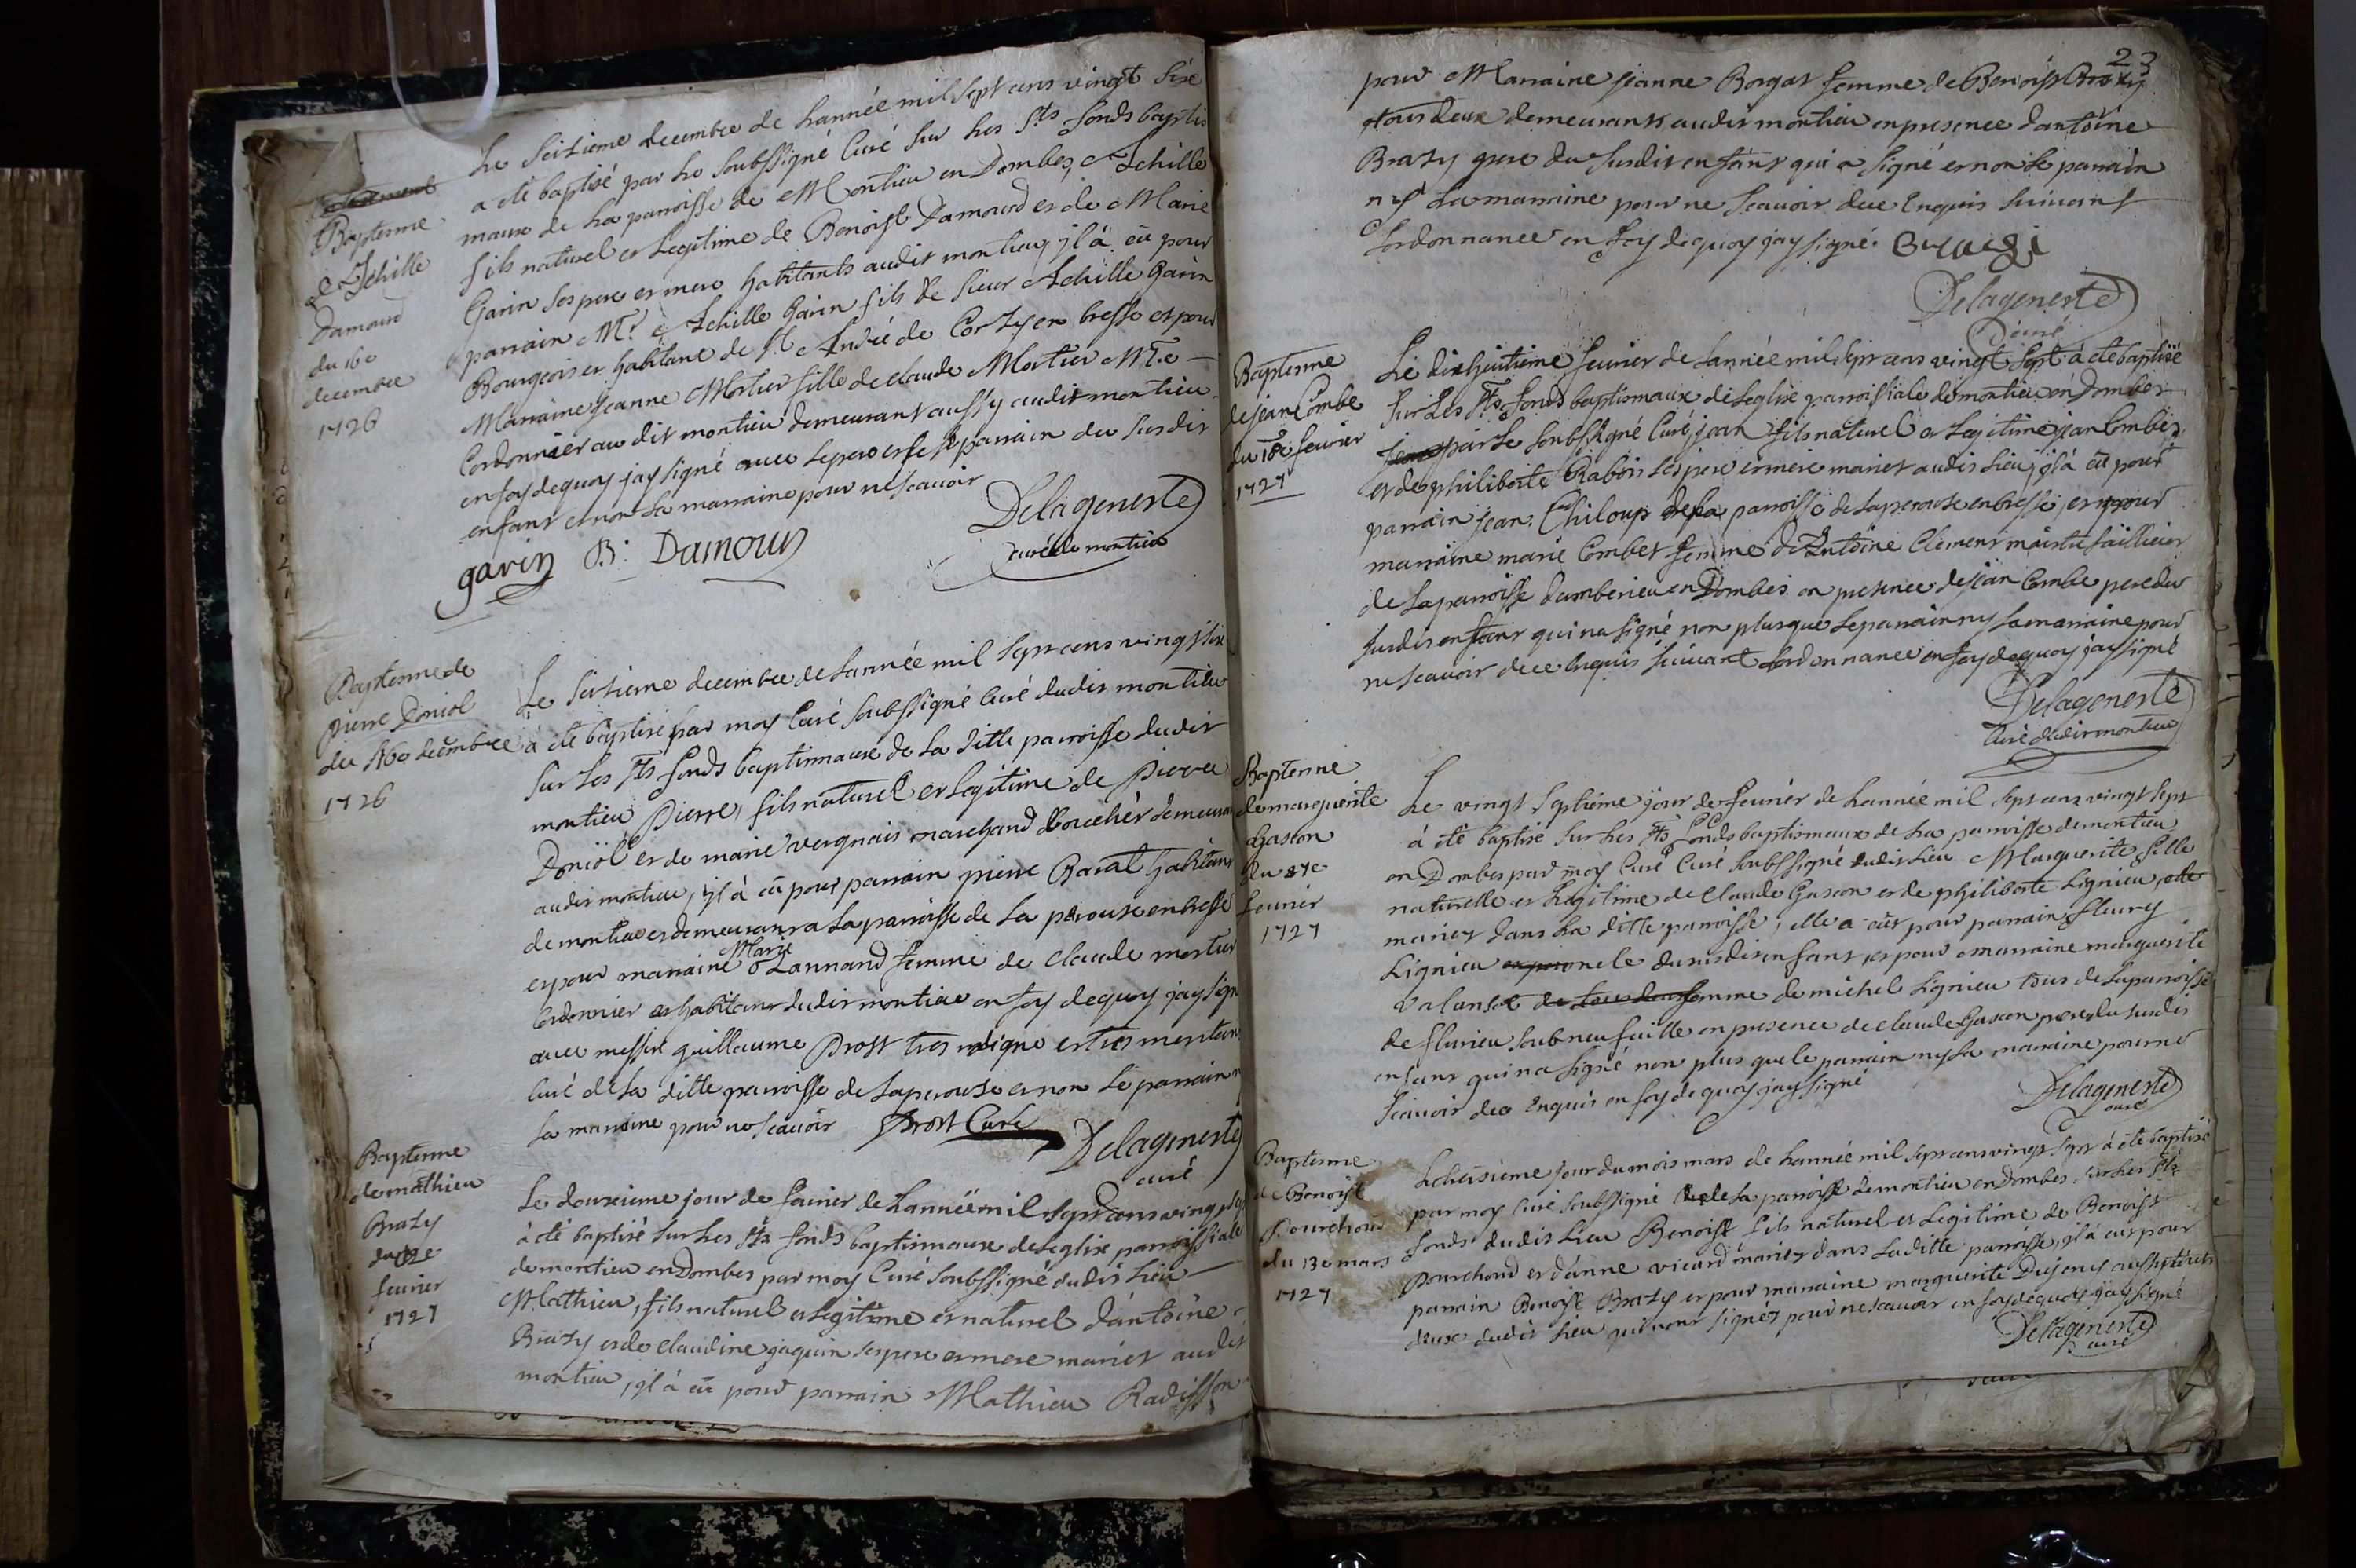 Baptesme
d'Achille
Damourd
du 16e
decembre
1726
Le seizieme decembre de Lannée mil sept cens vingt Sixe
a eté baptisé par Le Soubssigné Curé Sur Les Sts fonds baptis
maux de La parroisse de Montieu en Dombes Achille
fils naturel et Legitime de Benoist Damourd et de Marie
Garin Ses pere et mere habitants audit montieu, jl à eû pour
parrain Mr. Achille Garin fils de Sieur Achille Garin
Bourgeois et habitant de St. André de Corzy en bresse et pour
Marraine Jeanne Mortier fille de claude Mortier M.e
Cordonnier au dit montieu demeurant aussy audit montieu
en foy dequoy jay signé avec Le pere et Le parrain du Susdit
enfant et non La marraine pour ne Scavoir
garin B. Damour
Delageneste
curé de montieu
Baptesme de
pierre Doniol
du 16e decembre
1726
Le Seizieme decembre de Lannée mil Sept cens vingt Sixe
à eté baptisé par moy Curé Soubssigné Curé dudit montieu
Sur Les Sts fonds baptismaux de La ditte parroisse dudit
montieu Pierre, fils naturel et Legitime de Pierre
Doniol et de marie vergnais marchand Boucher demeurant
audit montieu, jl à eû pour parrain pierre habitant
de montieu et demeurant a La parroisse de La pérouse en bresse
et pour marraine Marie Lannand femme de claude mortier
Cordonnier et habitant dudit montieu en foy dequoy jay signé
avec messire guillaume Prost tres digne et tres meritant
Curé de La ditte parroisse de Laperouse et non Le parrain n
La marraine pour ne Scavoir Prost Curé
Delageneste
curé
Baptesme
de mathieu
Brazy
du 12e
feurier
1727
Le douzieme jour de feurier de Lannée mil Sept cens vingt Sept
à eté baptisé Sur Les Sts fonds baptismaux de Leglise parroissiale
de montieu en Dombes par moy Curé Soubssigné dudit Lieu
Mathieu, fils naturel et Legitime et naturel d'antoine
Brazy et de claudine jaquin Ses pere et mere mariez audit
montieu, jl à eû pour parrain Mathieu Radisson
23
pour Marraine Jeanne Borgat femme de Benoist Brazy
tous deux demeurants audit montieu en presence d'antoine
Brazy pere du Susdit enfant qui a signé et non Le parrain
ny La marraine pour ne Scavoir dece Enquis Suivant
Lordonnance en foy dequoy jay signé. Brazi
Delageneste
curé
Baptesme
de jean Combe
du 18e feurier
1727
Le dixhuitieme feurier de Lannée mil Sept cens vingt Sept à eté baptisé
Sur Les Sts fonds baptismaux de Leglise parroissiale de montieu en Dombes
par Le Soubssigné Curé, jean fils naturel et Legitime jean Combes
et de philiberte Rabois Ses pere et mere mariez audit Lieu, jl à eû pour
parrain jean Chiloup de La parroisse de Laperouse en bresse, et pour
marraine marie Combet femme de Antoine Clement maistre taillieur
de La parroisse d'amberieu en Dombes en presence de jean Combe pere du
Susdit enfant qui na Signé non plus que Le parrain ny La marraine pour
ne Scavoir dece Enquis Suivant Lordonnance en foy de quoy jay signé
Delageneste
Curé dudit montieu
Baptesme
de marguerite
Gascon
du 27e
feurier
1727
Le vingt Septiéme jour de feurier de Lannée mil Sept cens vingt Sept
à eté baptisé Sur Les Sts fonds baptismaux de La parroisse de montieu
en Dombes par moy Curé Curé Soubssigné dudit Lieu Marguerite fille
naturelle et Legitime de Claude Gascon et de philiberte Lignieu
mariez dans La ditte parroisse, elle a eût pour parrain fleury
Lignieu oncle du susdit enfant et pour marraine marguerite
valansot femme de michel Lignieu tous de La parroisse
de flurieu Soub neufuille en presence de claude Gascon pere du Susdit
enfant qui na Signé non plus que le parrain ny La marraine pour ne
Scavoir dece Enquis en foy de quoy jay signé
Delageneste
curé
Baptesme
de Benoist
Pourchoud
du 13e mars
1727
Le treisieme jour du mois mars de Lannée mil Sept cens vingt Sept à eté baptisé
par moy Curé Soubssigné de La parroisse de montieu en Dombes Sur Les Sts
fonds dudit Lieu Benoist fils naturel et Legitime de Benoist
Pourchoud et d'anne vicard mariez dans La ditte parroisse, jl à eut pour
parrain Benoist Brazy et pour marraine marguerite Dujeny aussy touts
deux dudit Lieu qui nont signéz pour ne Scavoir en foy dequoy jay signé
Delageneste
curé